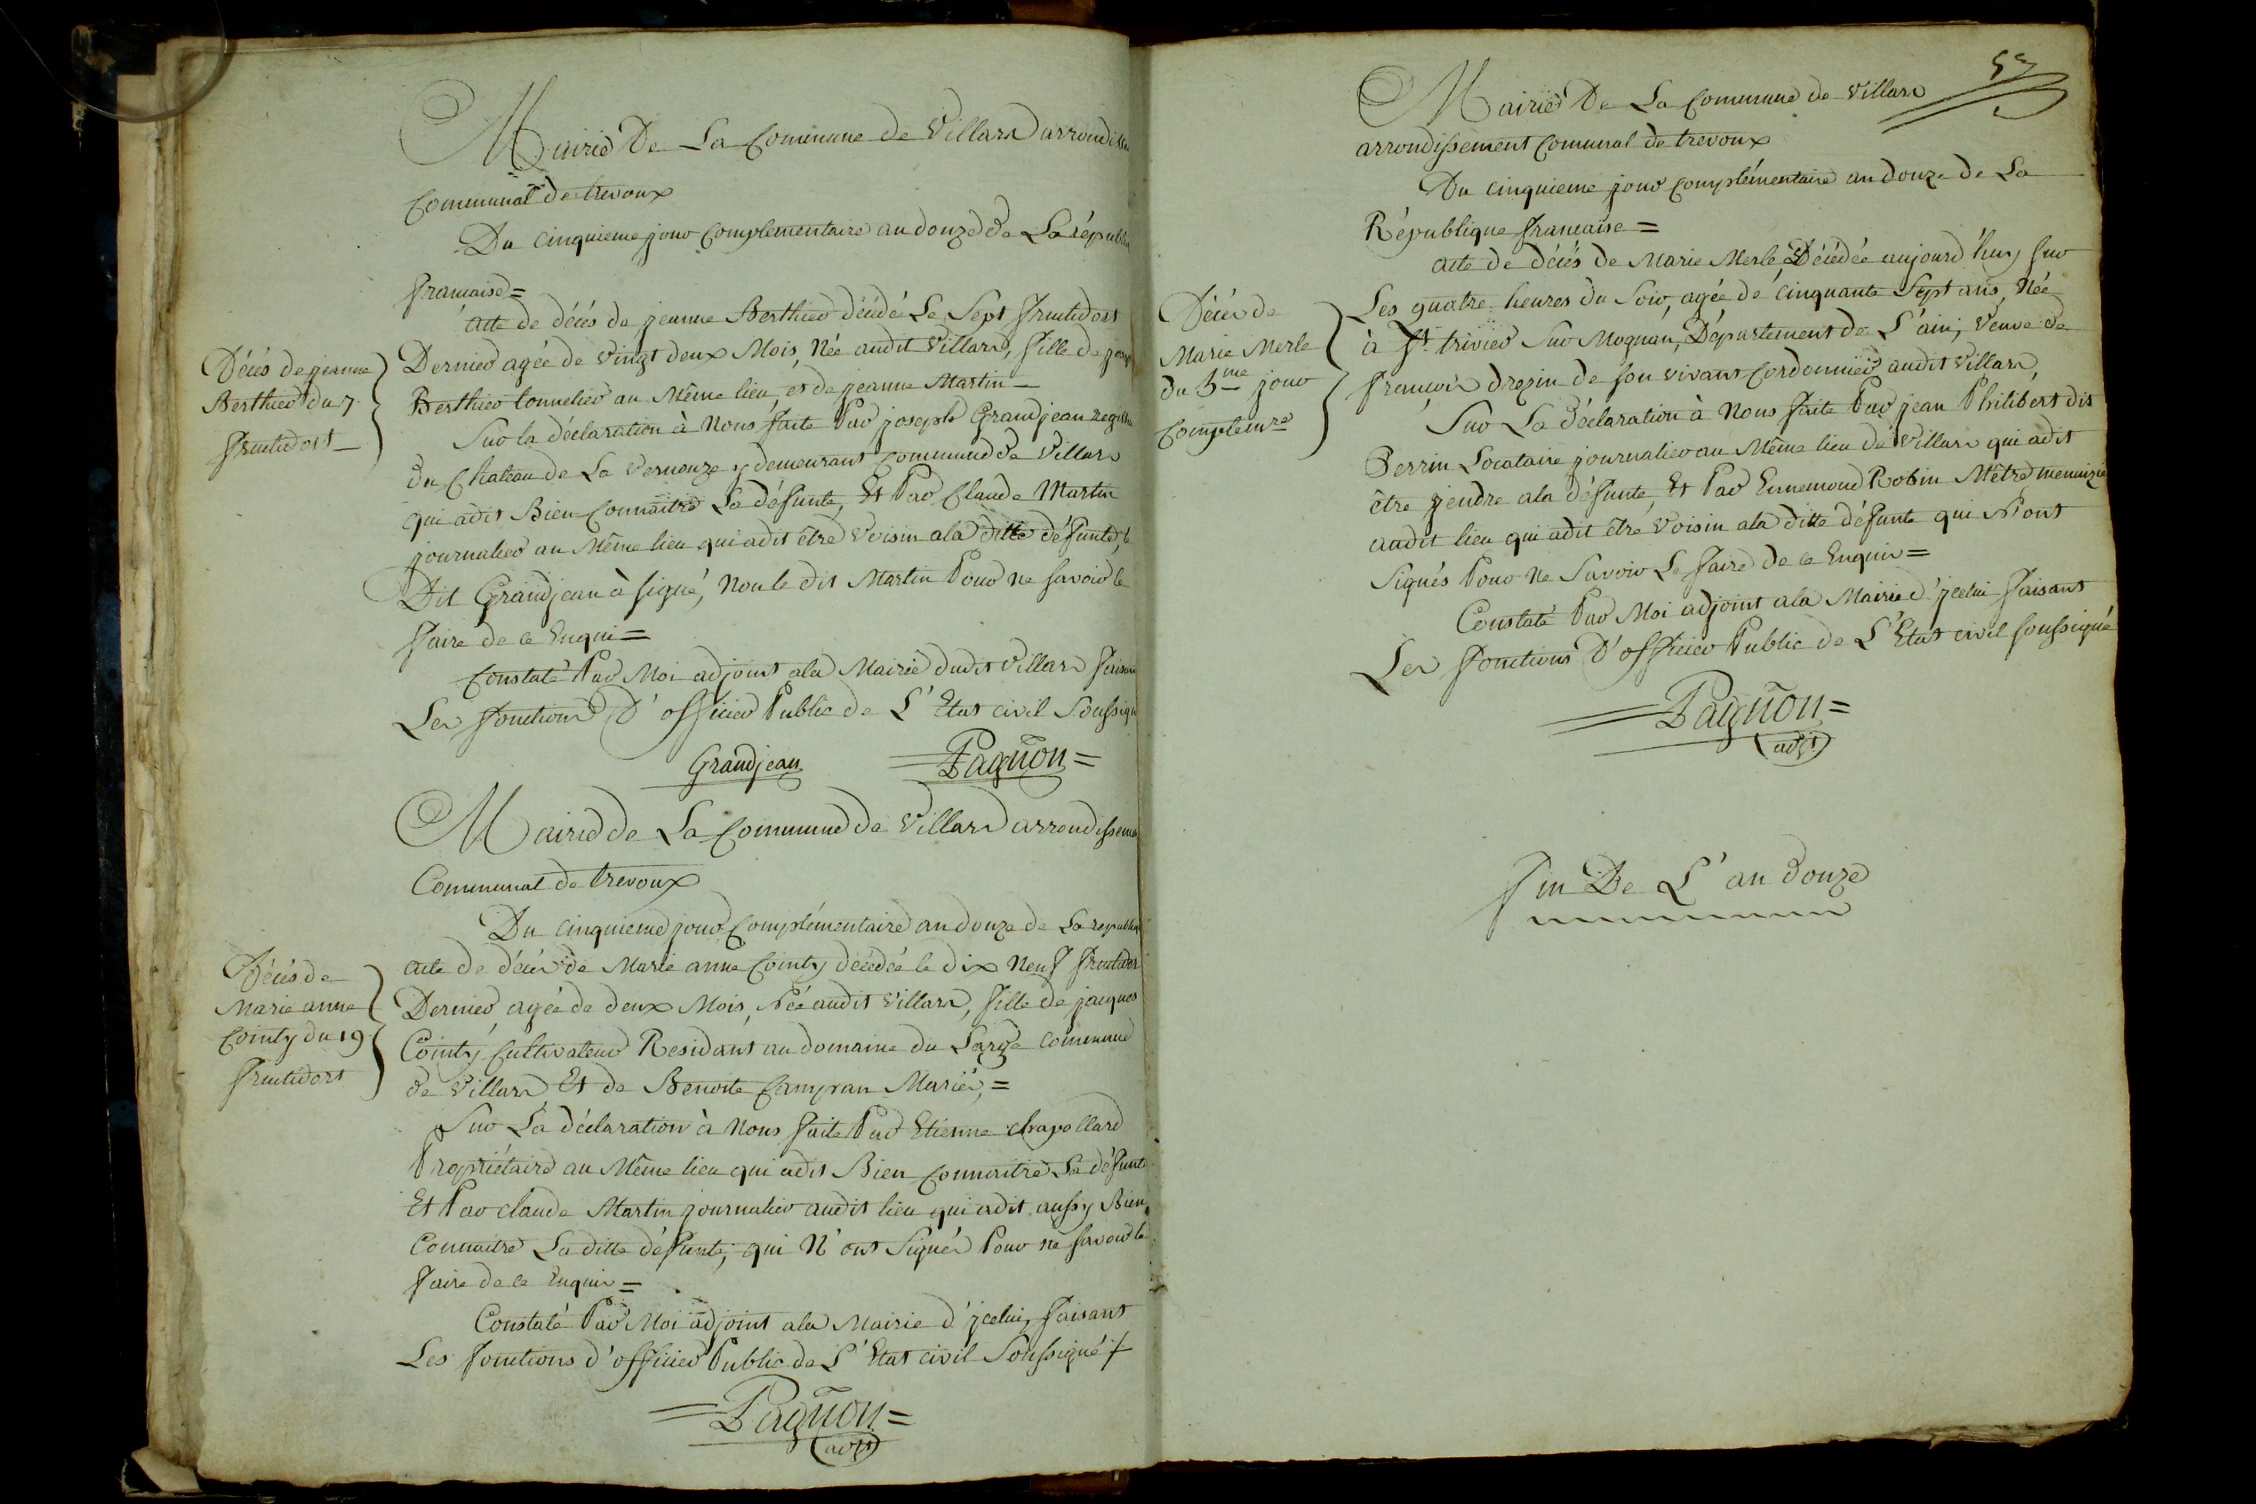 Mairie De La Commune de Villars arrondisse
Communal de trevoux
Du cinquieme jour Complementaire an douze de La républi
francaise =
Décès de jeanne
Berthier du 7
fructidort
acte de décés de jeanne Berthier décédé Le Sept fructidort
Dernier agée de vingt deux Mois, Née audit Villars, fille de josep
Berthier tonnelier au Même lieu, et de jeanne Martin
Sur la déclaration à Nous faite Par joseph Grandjean
du Chateau de La Vernouze y demeurant Commune de Villars
qui adit Bien Connaitre La défunte, Et Par Claude Martin
journalier au Même lieu qui adit être Voisin ala ditte défunte, le
Dit Grandjean à signé, Non le dit Martin Pour ne savoir le
faire de ce Enquis =
Constaté Par Moi adjoint ala Mairie dudit Villars faisan
Les fonctions D'officier Public de L'Etat civil Soussigné
Grandjean = Pagnon =
Mairie de La Commune de Villars arrondissemen
Communal de trevoux
Du cinquieme jour Complémentaire an douze de La republi
Décès de
Marie anne
Cointy du 19
fructidort
acte de décès de Marie anne Cointy décédée le dix Neuf fructidor
Dernier agée de deux Mois, Née audit Villars, fille de jacques
Cointy, Cultivateur Residant au domaine du Large Commune
de Villars Et de Benoite Campran Mariés, =
Sur La déclaration à Nous faite Par Etienne chapollard
Propriétaire au Même lieu qui adit Bien Connaitre La défunte
Et Par claude Martin journalier audit lieu qui adit aussy Bien
Connaitre La ditte défunte, qui N'ont Signés Pour ne savoir le
faire de ce Enquis =
Constaté Par Moi adjoint ala Mairie d'jcelui, faisant
Les fonctions d'officier Public de L'Etat civil Soussigné
= Pagnon =
adjt
57
Mairie De La Commune de Villars
arrondissement Comunal de trevoux
Du cinquieme jour Complémentaire an douze de La
République francaise =
Décès de
Marie Merle
du 5me jour
Complemre
acte de décès de Marie Merle, Décédée aujourd'huy sur
Les quatre heures du Soir, agée de cinquante Sept ans, Née
à St trivier Sur Mognan, Département de L'ain, Veuve de
francois drezin de son vivant Cordonnier audit Villars,
Sur La déclaration à Nous faite Par jean Philibert dit
Perrin Locataire journalier au Même lieu de Villars qui adit
être jendre ala défunte, Et Par Ennemond Robin Mêtre menuizie
audit lieu qui adit être Voisin ala ditte défunte qui N'ont
Signés Pour Ne Savoir Le faire de ce Enquis =
Constaté Par Moi adjoint ala Mairie d'jcelui faisant
Les fonctions D'officier Public de L'Etat civil soussigné
= Pagnon =
adjt
fin De L'an douze